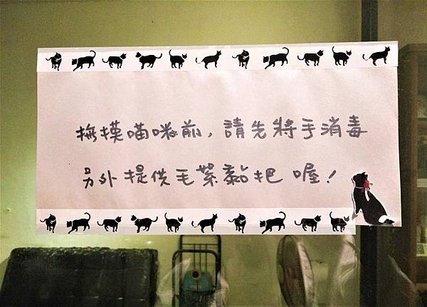 撫摸喵咪前，請先將手消毒
另外提供毛絮黏把 喔！